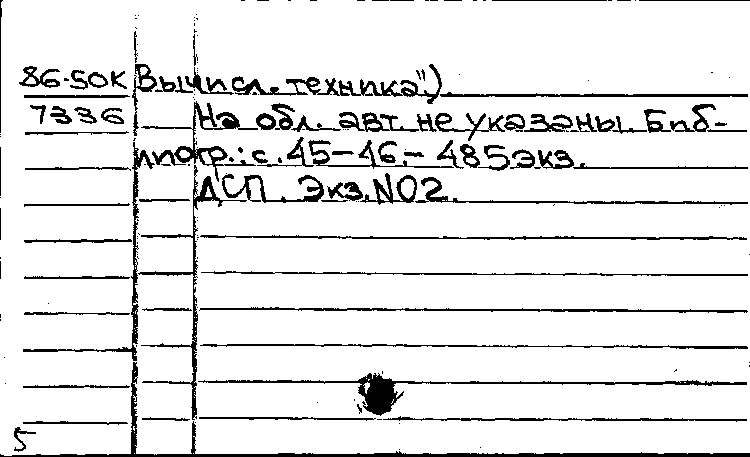 86-50К Вычисл. техника").
7336 На обл. авт. не указаны. Биб-
лиогр.: с. 45-46.- 485экз.
ДСП. Экз.N02.
5